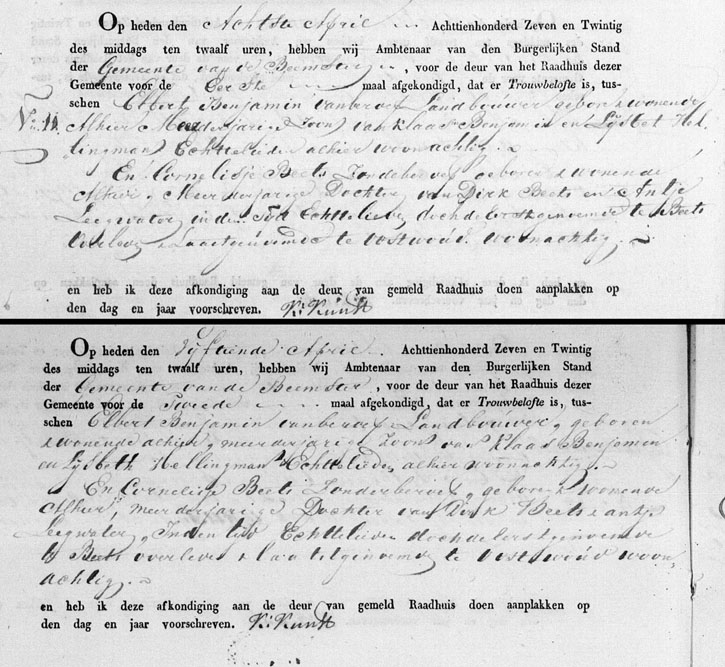 Op heden den Achtste April Achttienhonderd Zeven en Twintig
des middags ten twaalf uren, hebben wij Ambtenaar van den Burgerlijken Stand
der Gemeente van de Beemster, voor de deur van het Raadhuis dezer
Gemeente voor de Eerste maal afgekondigd, dat er Trouwbelofte is, tus-
schen Elbert Benjamin van beroep Landbouwer geboren & wonende
N 11 Alhier Meerderjarige Zoon van Klaas Benjamin en Lijsbet Hel
lingman Echtelieden alhier woonachtig.
En Cornelisje Beets Zonder beroep geboren & wonende
Alhier, Meerderjarige Dochter van Dirk Beets en Antje
Leegwater, in den tijd Echtelieden, doch de eerstgenoemde te Beets
overleden & Laatstgenoemde te Oostwoud woonachtig.
en heb ik deze afkondiging aan de deur van gemeld Raadhuis doen aanplakken op
den dag en jaar voorschreven. K: Kunst
Op heden den Vijftiende April Achttienhonderd Zeven en Twintig
des middags ten twaalf uren, hebben wij Ambtenaar van den Burgerlijken Stand
der Gemeente van de Beemster, voor de deur van het Raadhuis dezer
Gemeente voor de Tweede maal afgekondigd, dat er Trouwbelofte is, tus-
schen Elbert Benjamin van beroep Landbouwer, geboren
& wonende alhier, meerderjarige Zoon van Klaas Benjamin
en Lijsbeth Hellingman Echtelieden alhier woonachtig.
En Cornelisje Beets Zonder beroep, geboren & wonende
Alhier, meerderjarige Dochter van Dirk Beets & Antje
Leegwater, In den tijd Echtelieden doch de eerstgenoemde
te Beets overleden & laatstgenoemde te Oostwoud woon,
achtig.
en heb ik deze afkondiging aan de deur van gemeld Raadhuis doen aanplakken op
den dag en jaar voorschreven. K: Kunst